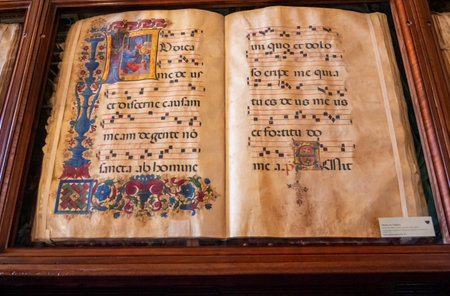 IUdica
me deus
et discerne causam
meam de gente nō
sancta ab homine
iniquo et dolo
so eripe me quia
tu es deus meus
et fortitudo
mea. p̄ Emit